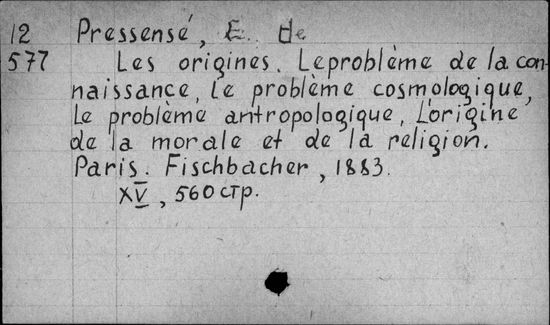 12 Pressensé, E. de
577 Les origines. Le problème de la con-
naissance, Le problème cosmologique,
Le problème antropologique, L'origine
de la morale et de la religion.
Paris. Fischbacher, 1883.
XV, 560 стр.